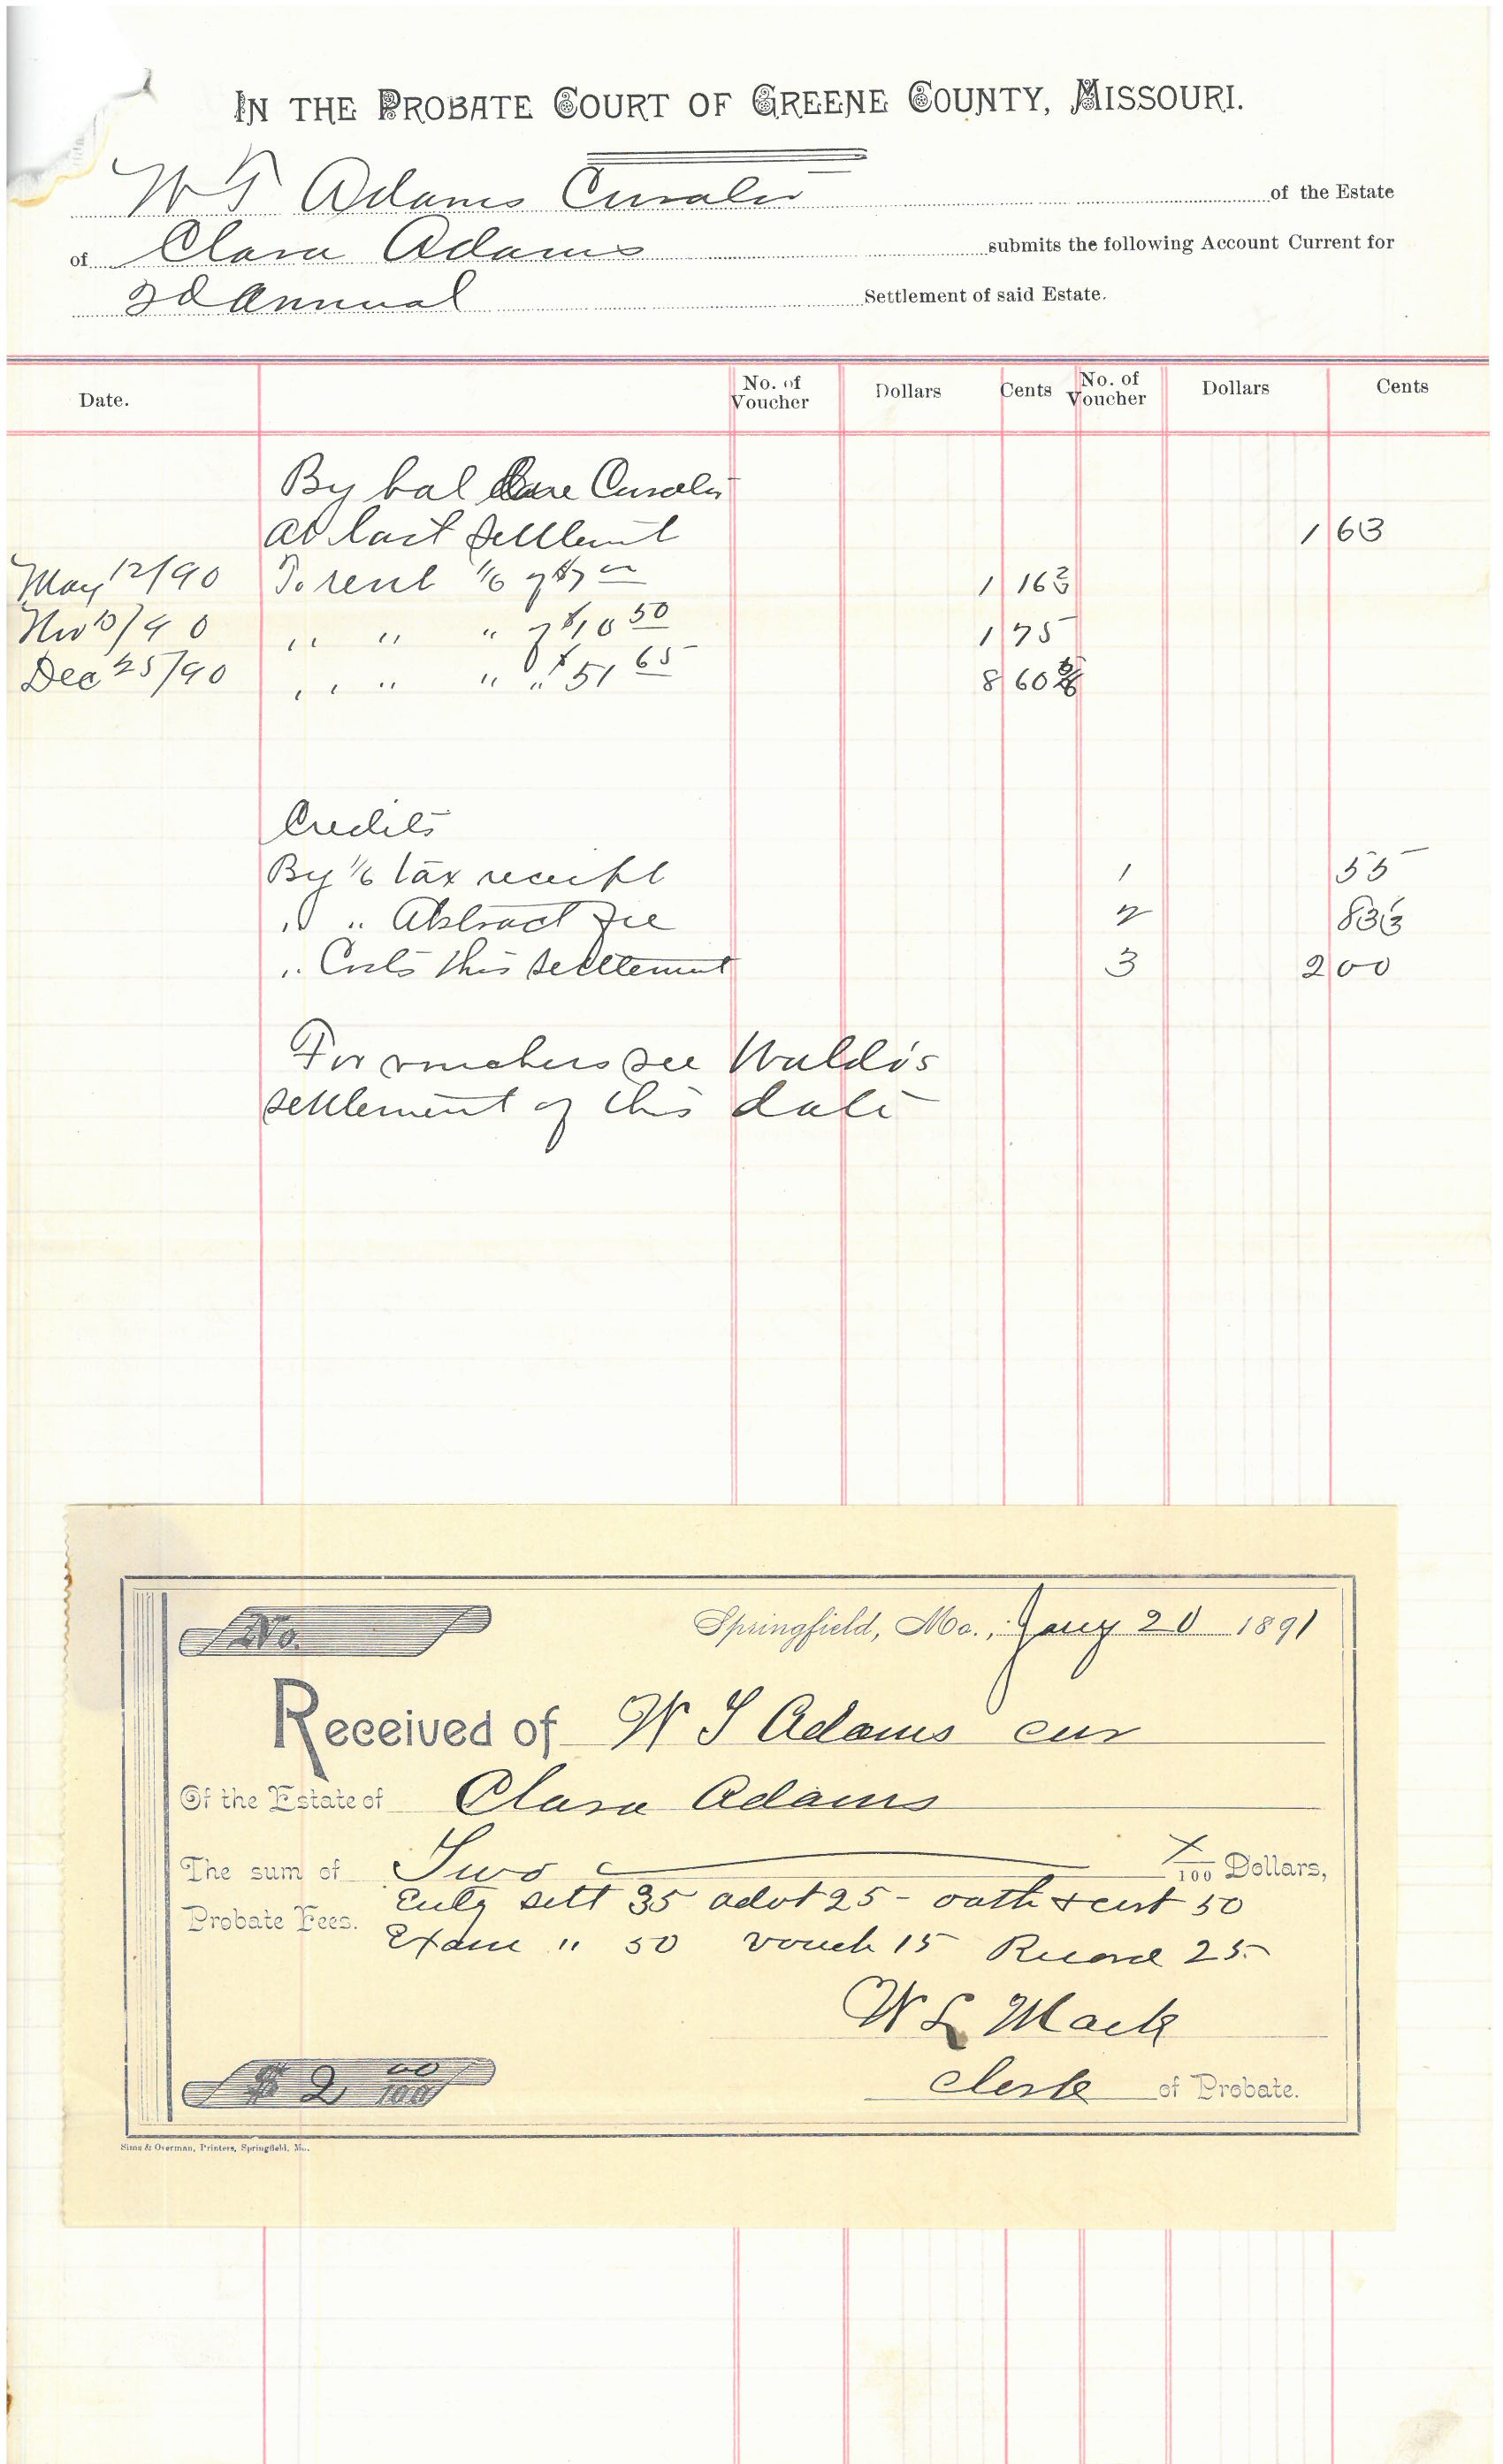 IN THE PROBATE COURT OF GREENE COUNTY, MISSOURI.
W T Adams Curator of the Estate
of Clara Adams submits the following Account Current for
2d Annual Settlement of said Estate.
Date. No. of Voucher Dollars Cents No. of Voucher Dollars Cents
By bal due Curator
at last settlement 1 63
May 12/90 To rent 1/6 of $7 00 1 16 2/3
Nov 10/90 " " " of $10 50 1 75
Dec 25/90 " " " " $51 65 8 60 5/6
Credits
By 1/6 tax receipt 1 55
" " Abstract fee 2 83 1/3
" Costs this settlement 3 2 00
For vouchers see Waldo's
settlement of this date
No.
Springfield, Mo., Jany 20 1891
Received of W T Adams cur
Of the Estate of Clara Adams
The sum of Two x/100 Dollars,
Probate Fees. Entg sett 35 advt 25 - oath & cert 50
Exam " 50 vouch 15 Record 25
W L Mack
$ 2 00/100 Clerk of Probate.
Sims & Overman, Printers, Springfield, Mo.